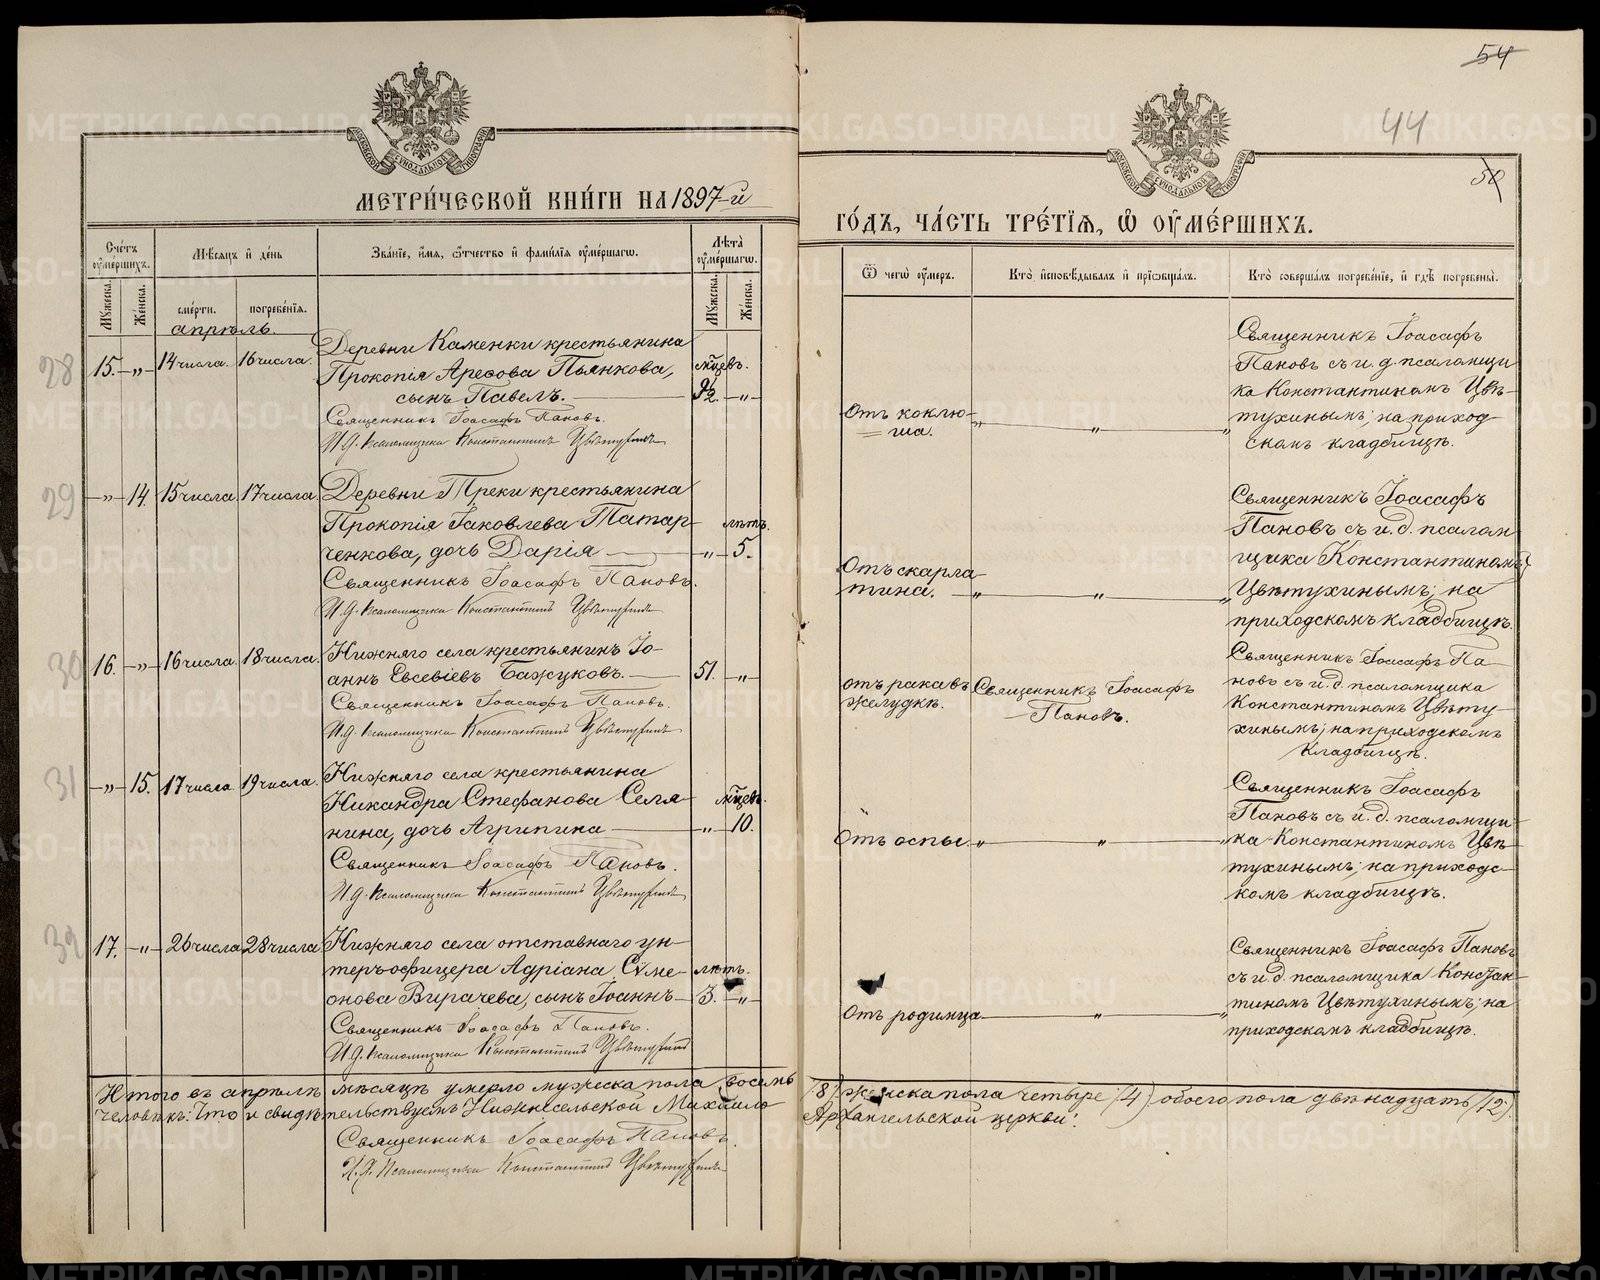 54
44
50
МЕТРИ́ЧЕСКОЙ КНИ́ГИ НА 1897-й
ГО́ДЪ, ЧА́СТЬ ТРЕ́ТІЯ, Ѡ҆ ОУ҆МЕ́РШИХЪ.
Сче́тъ оу҆ме́ршихъ.
Мѣ́сяцъ и҆ де́нь
Зва́нїе, и҆́мя, ѻ҆́тчество и҆ фами́лїя оу҆ме́ршагѡ.
Лѣ́та оу҆ме́ршагѡ.
Ѿ чегѡ̀ оу҆́меръ.
Кто̀ и҆сповѣ́дывалъ и҆ прїѡбща́лъ.
Кто̀ соверша́лъ погребе́нїе, и҆ гдѣ̀ погребены̀.
Мꙋ́жеска.
Же́нска.
сме́рти.
погребе́нїя.
Мꙋ́жеска.
Же́нска.
апрѣль.
28
15. — „ —
14 числа.
16 числа.
Деревни Каменки крестьянина
Прокопія Аресова Пьянкова,
сынъ Павелъ.
Священникъ Іоасафъ Пановъ.
И.д. псаломщика Константинъ Цвѣтухинъ
мцевъ.
9½ — „ —
Отъ коклю-
ша.
„ „ „
Священникъ Іоасафъ
Пановъ съ и. д. псаломщи
ка Константиномъ Цвѣ-
тухинымъ; на приход-
скомъ кладбищѣ.
29
— „ — 14.
15 числа
17 числа.
Деревни Треки крестьянина
Прокопія Іаковлева Татар-
ченкова, дочь Дарія
Священникъ Іоасафъ Пановъ.
И.д. псаломщика Константинъ Цвѣтухинъ
лѣтъ.
„ — 5.
Отъ скарла-
тина.
„ „ „
Священникъ Іоасафъ
Пановъ съ и. д. псалом
щика Константиномъ
Цвѣтухинымъ; на
приходскомъ кладбищѣ.
30
16. — „ —
16 числа.
18 числа.
Нижняго села крестьянинъ Іо-
аннъ Евсевіевъ Бажуковъ.
Священникъ Іоасафъ Пановъ.
И.д. псаломщика Константинъ Цвѣтухинъ
51. — „ —
отъ рака въ
желудкѣ.
Священникъ Іоасафъ
Пановъ.
Священникъ Іоасафъ Па-
новъ съ и. д. псаломщика
Константиномъ Цвѣту-
хинымъ; на приходскомъ
кладбищѣ.
31
— „ — 15.
17 числа
19 числа.
Нижняго села крестьянина
Никандра Стефанова Селя-
нина, дочь Агрипина
Священникъ Іоасафъ Пановъ.
И.д. псаломщика Константинъ Цвѣтухинъ
мцевъ.
„ — 10.
Отъ оспы.
„ „ „
Священникъ Іоасафъ
Пановъ съ и. д. псаломщи-
ка Константиномъ Цвѣ-
тухинымъ; на приходс-
комъ кладбищѣ.
32
17. — „ —
26 числа
28 числа
Нижняго села отставнаго ун-
теръофицера Адріана Сѵме-
онова Вирачева, сынъ Іоаннъ
Священникъ Іоасафъ Пановъ.
И.д. псаломщика Константинъ Цвѣтухинъ
лѣтъ.
3. — „ —
Отъ родимца
„ „
Священникъ Іоасафъ Пановъ
съ и.д. псаломщика Констан-
тиномъ Цвѣтухинымъ; на
приходскомъ кладбищѣ.
Итого въ апрѣлѣ мѣсяцѣ умерло мужеска пола восемь /8/ женска пола четыре /4/ обоего пола двѣнадцать /12/.
человѣкъ: Что и свидѣтельствуемъ Нижнесельской Михаило Архангельской церкви:
Священникъ Іоасафъ Пановъ.
И.д. псаломщика Константинъ Цвѣтухинъ